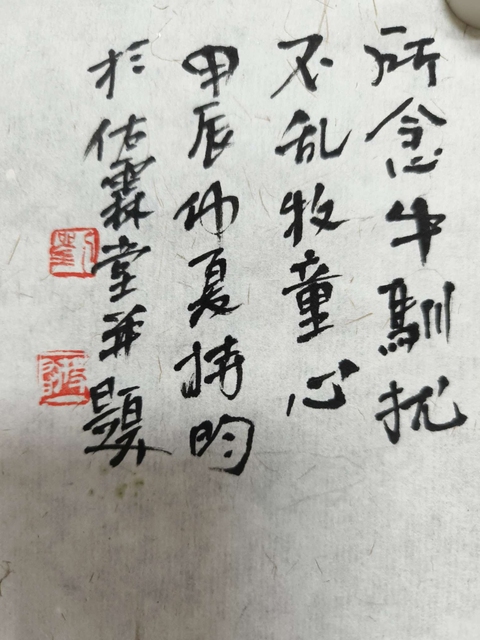 所念牛馴扰
不乱牧童心
甲辰仲夏情昀
於佑霖堂并题